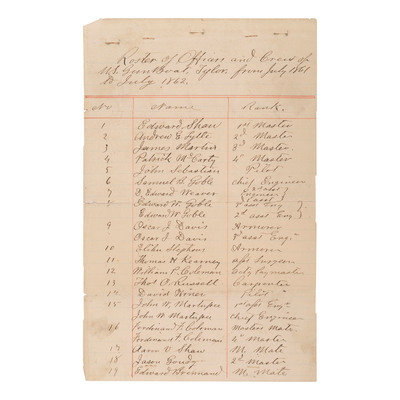 Roster of Officers and Crew of
U.S. Gun Boat, Tylor, from July 1861
to July 1862.
No Name Rank.
1 Edward Shaw 1st Master
2 Andrew E. 2d Master
3 James Martin 3d Master
4 Patrick McCarty 4" Master
5 John Sebastian Pilot
6 Samuel L. Goble Chief Engineer
7 D. Edward Weaver 2d asst Eng
8 Edward W. Goble 3" asst Eng
Edward W. Goble 2d asst Eng
9 Oscar J. Davis Armorer
Oscar J. Davis asst Engr
10 Stephens Armorer
11 Thomas H. Kearney asst Surgeon
12 William P. Coleman Paymaster
13 Thos O. Russell Carpenter
14 David Pilot
15 John W. Hartupee 1st asst Engr
John W. Hartupee Chief Engineer
16 Ferdinand T. Coleman Masters Mate
Ferdinand T. Coleman 4" Master
17 Aaron V. Shaw M. Mate
18 Jason Goudy 2d Master
19 Edward Brennand M. Mate